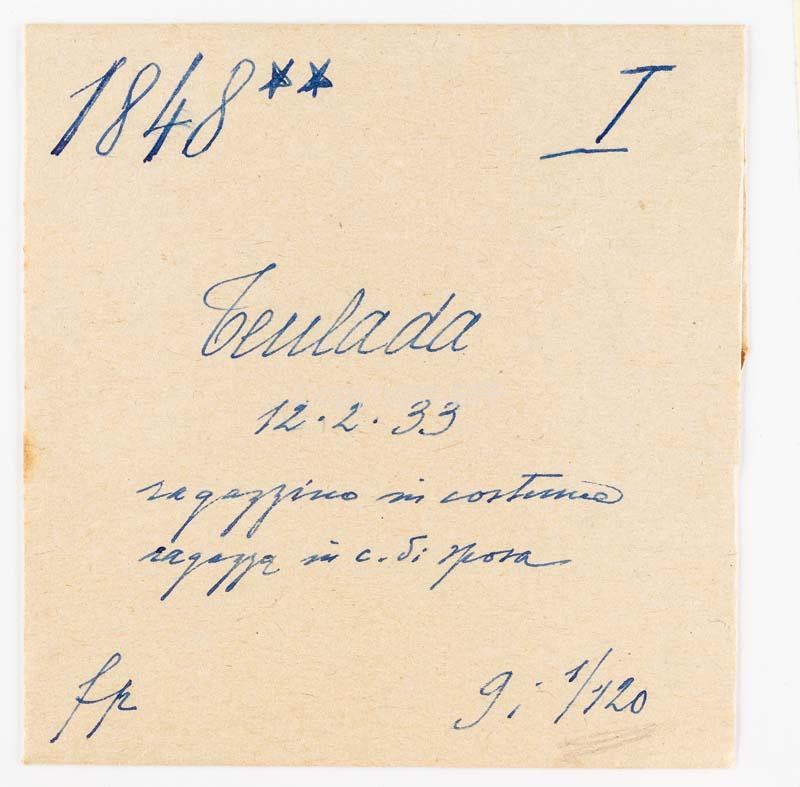 1848** I
Teulada
12.2.33
ragazzino in costume
ragazza in c. di sposa
fp 9; 1/120